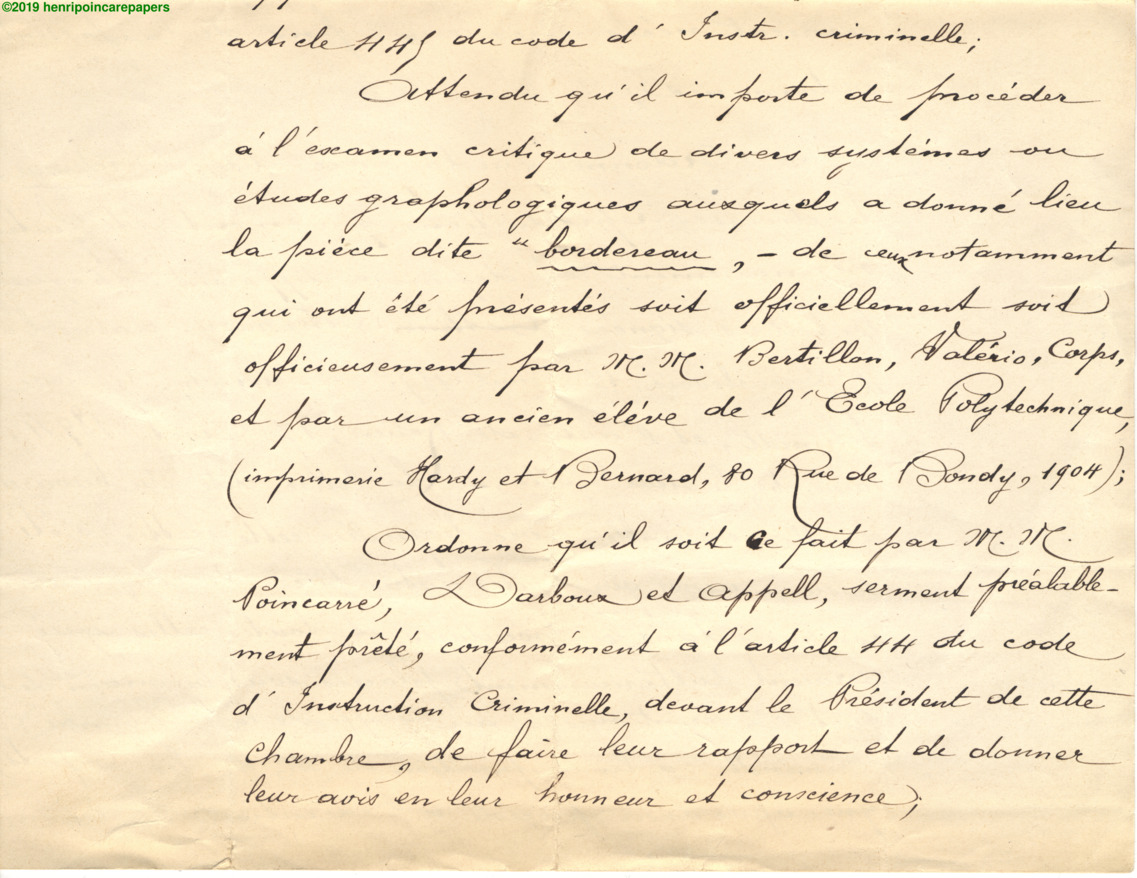 ©2019 henripoincarepapers
article 445 du code d' Instr. criminelle;
Attendu qu'il importe de procéder
à l'éxamen critique de divers systèmes ou
études graphologiques auxquels a donné lieu
la pièce dite " bordereau , - de ceux notamment
qui ont été présentés soit officiellement soit
officieusement par M. M. Bertillon, Valério, Corps,
et par un ancien élève de l' Ecole Polytechnique,
(imprimerie Hardy et Bernard, 80 Rue de Bondy, 1904);
Ordonne qu'il soit ce fait par M. M.
Poincarré, Darboux et Appell, serment préalable-
ment prêté, conformément à l'article 44 du code
d' Instruction Criminelle, devant le Président de cette
Chambre, de faire leur rapport et de donner
leur avis en leur honneur et conscience;